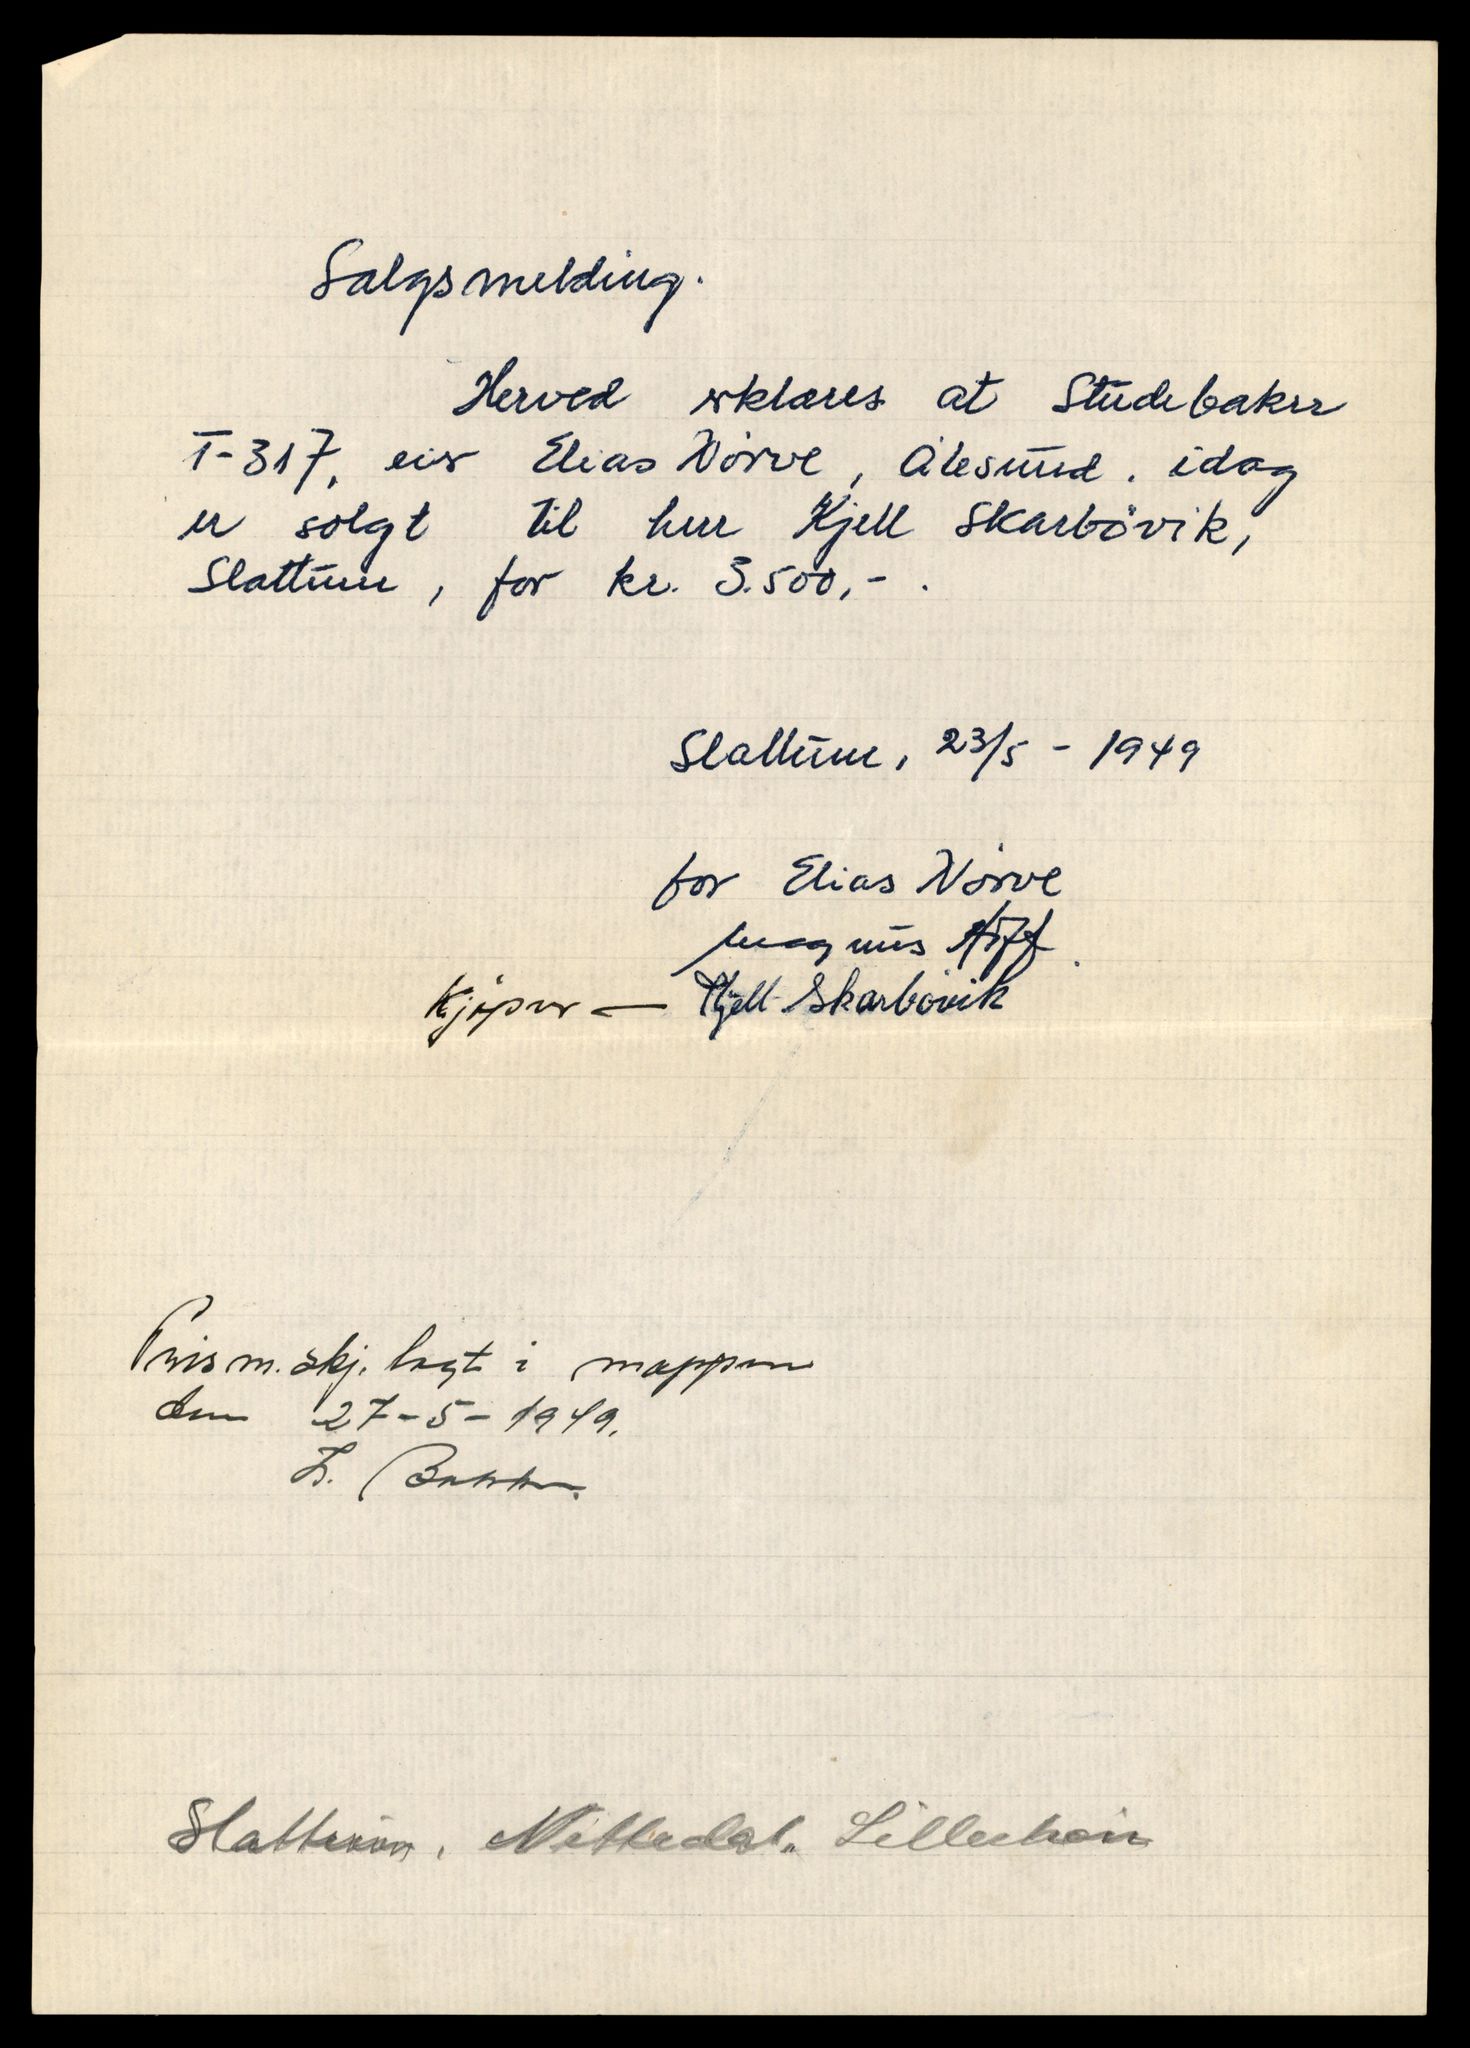 Salgsmelding.
Herved erklæres at Studebaker
T-317, eier Elias Nörve, Ålesund. idag
er solgt til herr Kjell Skarbövik,
Slattum, for kr. 3.500,- .
Slattum, 23/5 - 1949
for Elias Nörve
Magnus
Kjöper — Kjell Skarbövik
Prism. skj. lagt i mappen
den 27-5-1949.
Slattum, Nittedal.